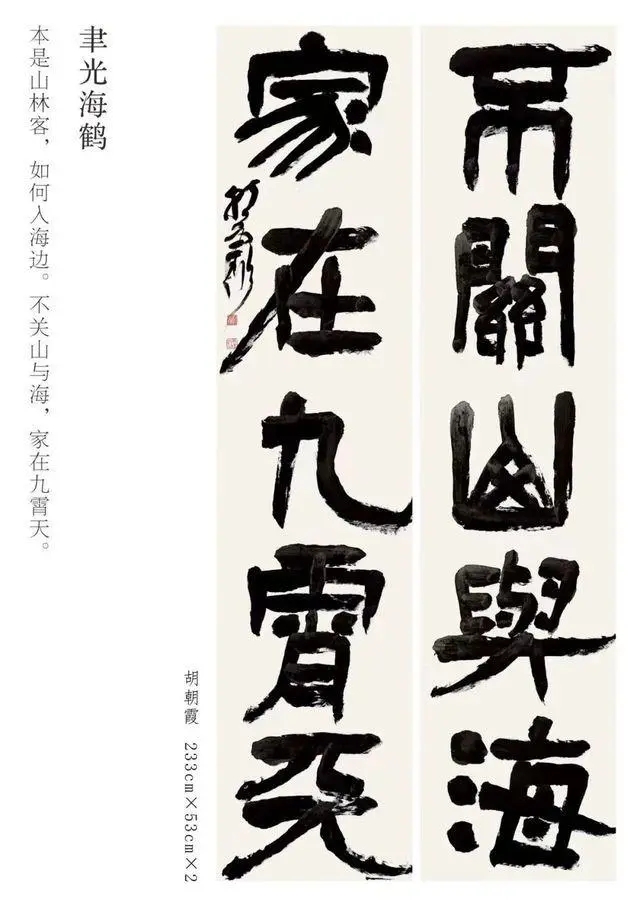 不關山與海
家在九霄天
胡朝霞 233cm×53cm×2
聿光海鹤
本是山林客，如何入海边。不关山与海，家在九霄天。